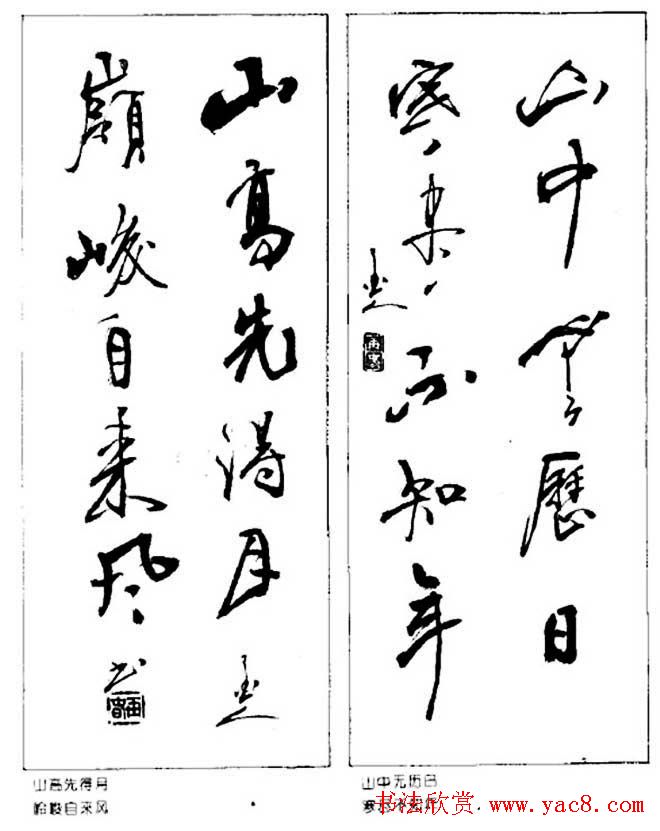 山中無歷日
寒尽不知年
山高先得月
嶺峻自来风
山高先得月
岭峻自来风
山中无历日
书法欣赏 www.yac8.com